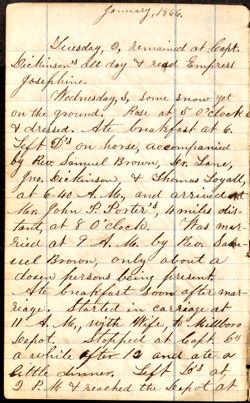 January, 1866.
Tuesday, 2, remained at Capt.
Dickinson's all day & read Empress
Josephine.
Wednesday, 3, some snow yet
on the ground. Rose at 5 O'clock
& dressed. Ate breakfast at 6.
Left D's on horse, accompanied
by Rev. Samuel Brown, Dr. Lane,
Jno. Dickinson, & Thomas Loyall,
at 6-40 A.M., and arrived at
Mr. John P. Porter's, 4 miles dis-
tant, at 8 O'clock. Was mar-
ried at 9 A.M. by Rev. Sam-
uel Brown, only about a
dozen persons being present.
Ate breakfast soon after mar-
riage. Started in carriage at
11 A.M., with Wife, to Millboro
Depot. Stopped at Capt.
a while after 12 and ate a
little dinner. Left D's at
2 P.M. & reached the Depot at